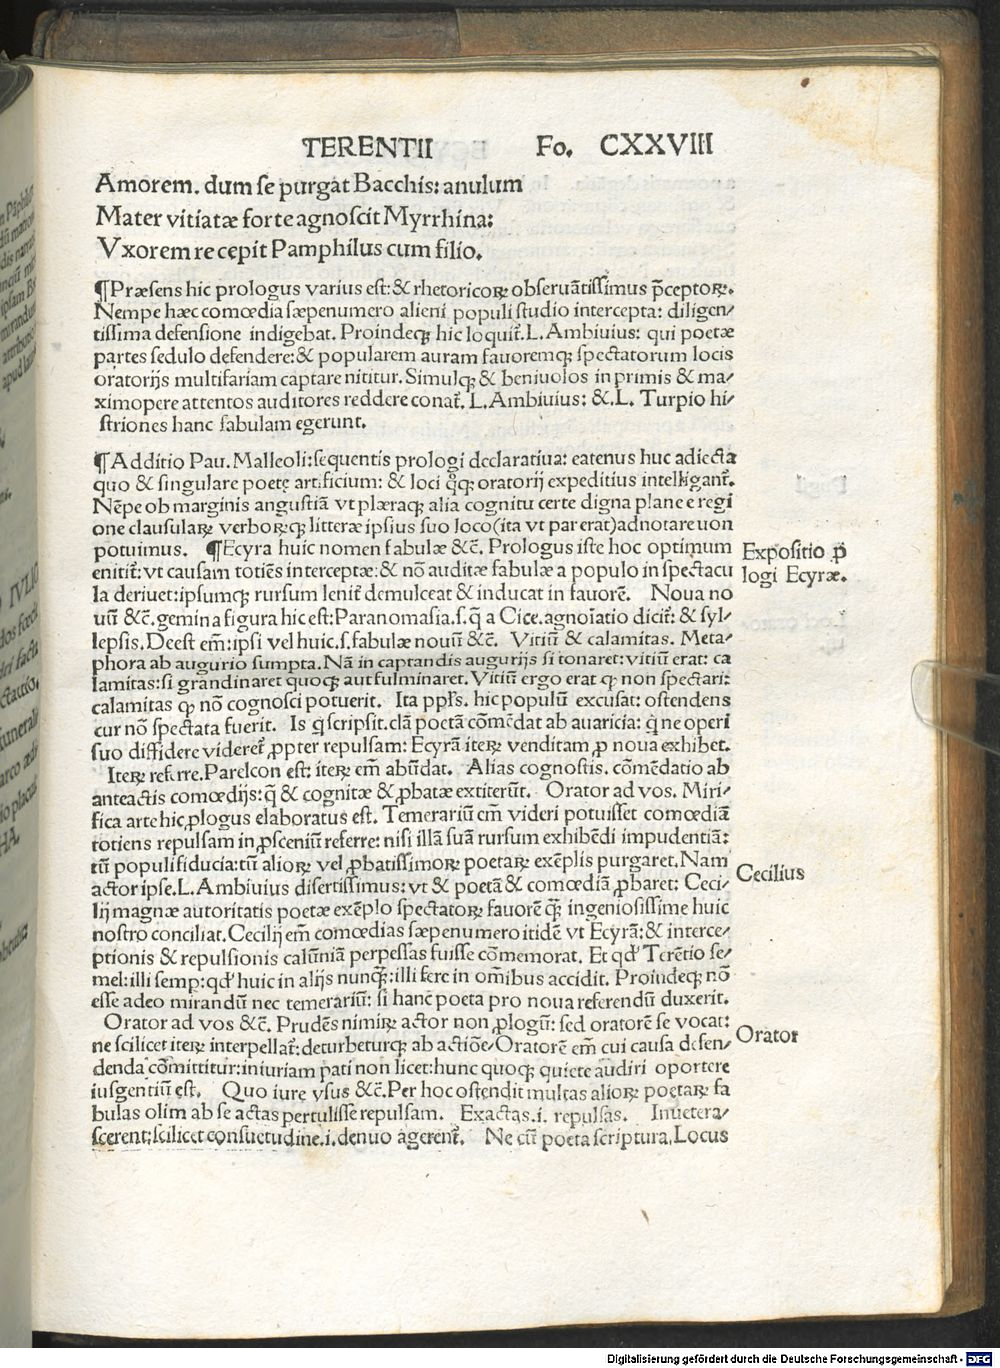 TERENTII Fo. CXXVIII
Amorem. dum ſe purgat Bacchis: anulum
Mater vitiatæ forte agnoſcit Myrrhina:
Vxorem recepit Pamphilus cum filio.
¶Præſens hic prologus varius eſt: & rhetoricoꝝ obſeruãtiſſimus p̃ceptoꝝ.
Nempe hæc comœdia ſæpenumero alieni populi ſtudio intercepta: diligen⸗
tiſſima defenſione indigebat. Proindeqꝫ hic loquit᷑. L. Ambiuius: qui poetæ
partes ſedulo defendere: & popularem auram fauoremqꝫ ſpectatorum locis
oratorijs multifariam captare nititur. Simulqꝫ & beniuolos in primis & ma⸗
ximopere attentos auditores reddere conat᷑. L. Ambiuius: &. L. Turpio hi⸗
ſtriones hanc fabulam egerunt.
¶Additio Pau. Malleoli: ſequentis prologi declaratiua: eatenus huc adiecta
quo & ſingulare poete artificium: & loci q̃qꝫ oratorij expeditius intelligant᷑.
Nẽpe ob marginis anguſtiã vt plæraqꝫ alia cognitu certe digna plane e regi
one clauſulaꝝ verboꝝqꝫ litteræ ipſius ſuo loco (ita vt par erat) adnotare uon
potuimus. ¶Ecyra huic nomen fabulæ &c̃. Prologus iſte hoc optimum
enitit᷑: vt cauſam totiẽs interceptæ: & nõ auditæ fabulæ a populo in ſpectacu
la deriuet: ipſumqꝫ rurſum lenit᷑ demulceat & inducat in fauorẽ. Noua no
uũ &c̃. gemina figura hic eſt: Paranomaſia. ſ. q̃ a Cice. agnoĩatio dicit᷑: & ſyl⸗
lepſis. Deeſt em̃: ipſi vel huic. ſ. fabulæ nouũ &c̃. Vitiũ & calamitas. Meta⸗
phora ab augurio ſumpta. Nã in captandis augurijs ſi tonaret: vitiũ erat: ca
lamitas: ſi grandinaret quoqꝫ aut fulminaret. Vitiũ ergo erat ꝙ non ſpectari:
calamitas ꝙ nõ cognoſci potuerit. Ita pp̃ls. hic populũ excuſat: oſtendens
cur nõ ſpectata fuerit. Is q̃ ſcripſit. clã poetã cõmẽdat ab auaricia: q̃ ne operi
ſuo diffidere videret᷑ ꝓpter repulſam: Ecyrã iteꝝ venditam ꝓ noua exhibet.
Iteꝝ referre. Parelcon eſt: iteꝝ em̃ abũdat. Alias cognoſtis. cõmẽdatio ab
anteactis comœdijs: q̃ & cognitæ & ꝓbatæ extiterũt. Orator ad vos. Miri⸗
fica arte hic ꝓlogus elaboratus eſt. Temerariũ em̃ videri potuiſſet comœdiã
totiens repulſam in ꝓſceniũ referre: niſi illã ſuã rurſum exhibẽdi impudentiã:
tũ populi fiducia: tũ alioꝝ vel ꝓbatiſſimoꝝ poetaꝝ exẽplis purgaret. Nam
actor ipſe. L. Ambiuius diſertiſſimus: vt & poetã & comœdiã ꝓbaret: Ceci⸗
lij magnæ autoritatis poetæ exẽplo ſpectatoꝝ fauorẽ q̃ꝫ ingenioſiſſime huic
noſtro conciliat. Cecilij em̃ comœdias ſæpenumero itidẽ vt Ecyrã: & interce⸗
ptionis & repulſionis calũniã perpeſſas fuiſſe cõmemorat. Et qđ Terẽtio ſe⸗
mel: illi ſemp: qđ huic in alijs nunqꝫ: illi fere in om̃ibus accidit. Proindeqꝫ nõ
eſſe adeo mirandũ nec temerariũ: ſi hanc poeta pro noua referendũ duxerit.
Orator ad vos &c̃. Prudẽs nimiꝝ actor non ꝓlogũ: ſed oratorẽ ſe vocat:
ne ſcilicet iteꝝ interpellat᷑: deturbeturqꝫ ab actiõe⸗ Oratorẽ em̃ cui cauſa defen⸗
denda cõmittitur: iniuriam pati non licet: hunc quoqꝫ quiete audiri oportere
iuſgentiũ eſt. Quo iure vſus &c̃. Per hoc oſtendit multas alioꝝ poetaꝝ fa
bulas olim ab ſe actas pertuliſſe repulſam. Exactas. i. repulſas. Inuetera⸗
ſcerent: ſcilicet conſuetudine. i. denuo agerent᷑. Ne cũ poeta ſcriptura. Locus
Expoſitio ꝓ
logi Ecyræ.
Cecilius
Orator
Digitalisierung gefördert durch die Deutsche Forschungsgemeinschaft - DFG